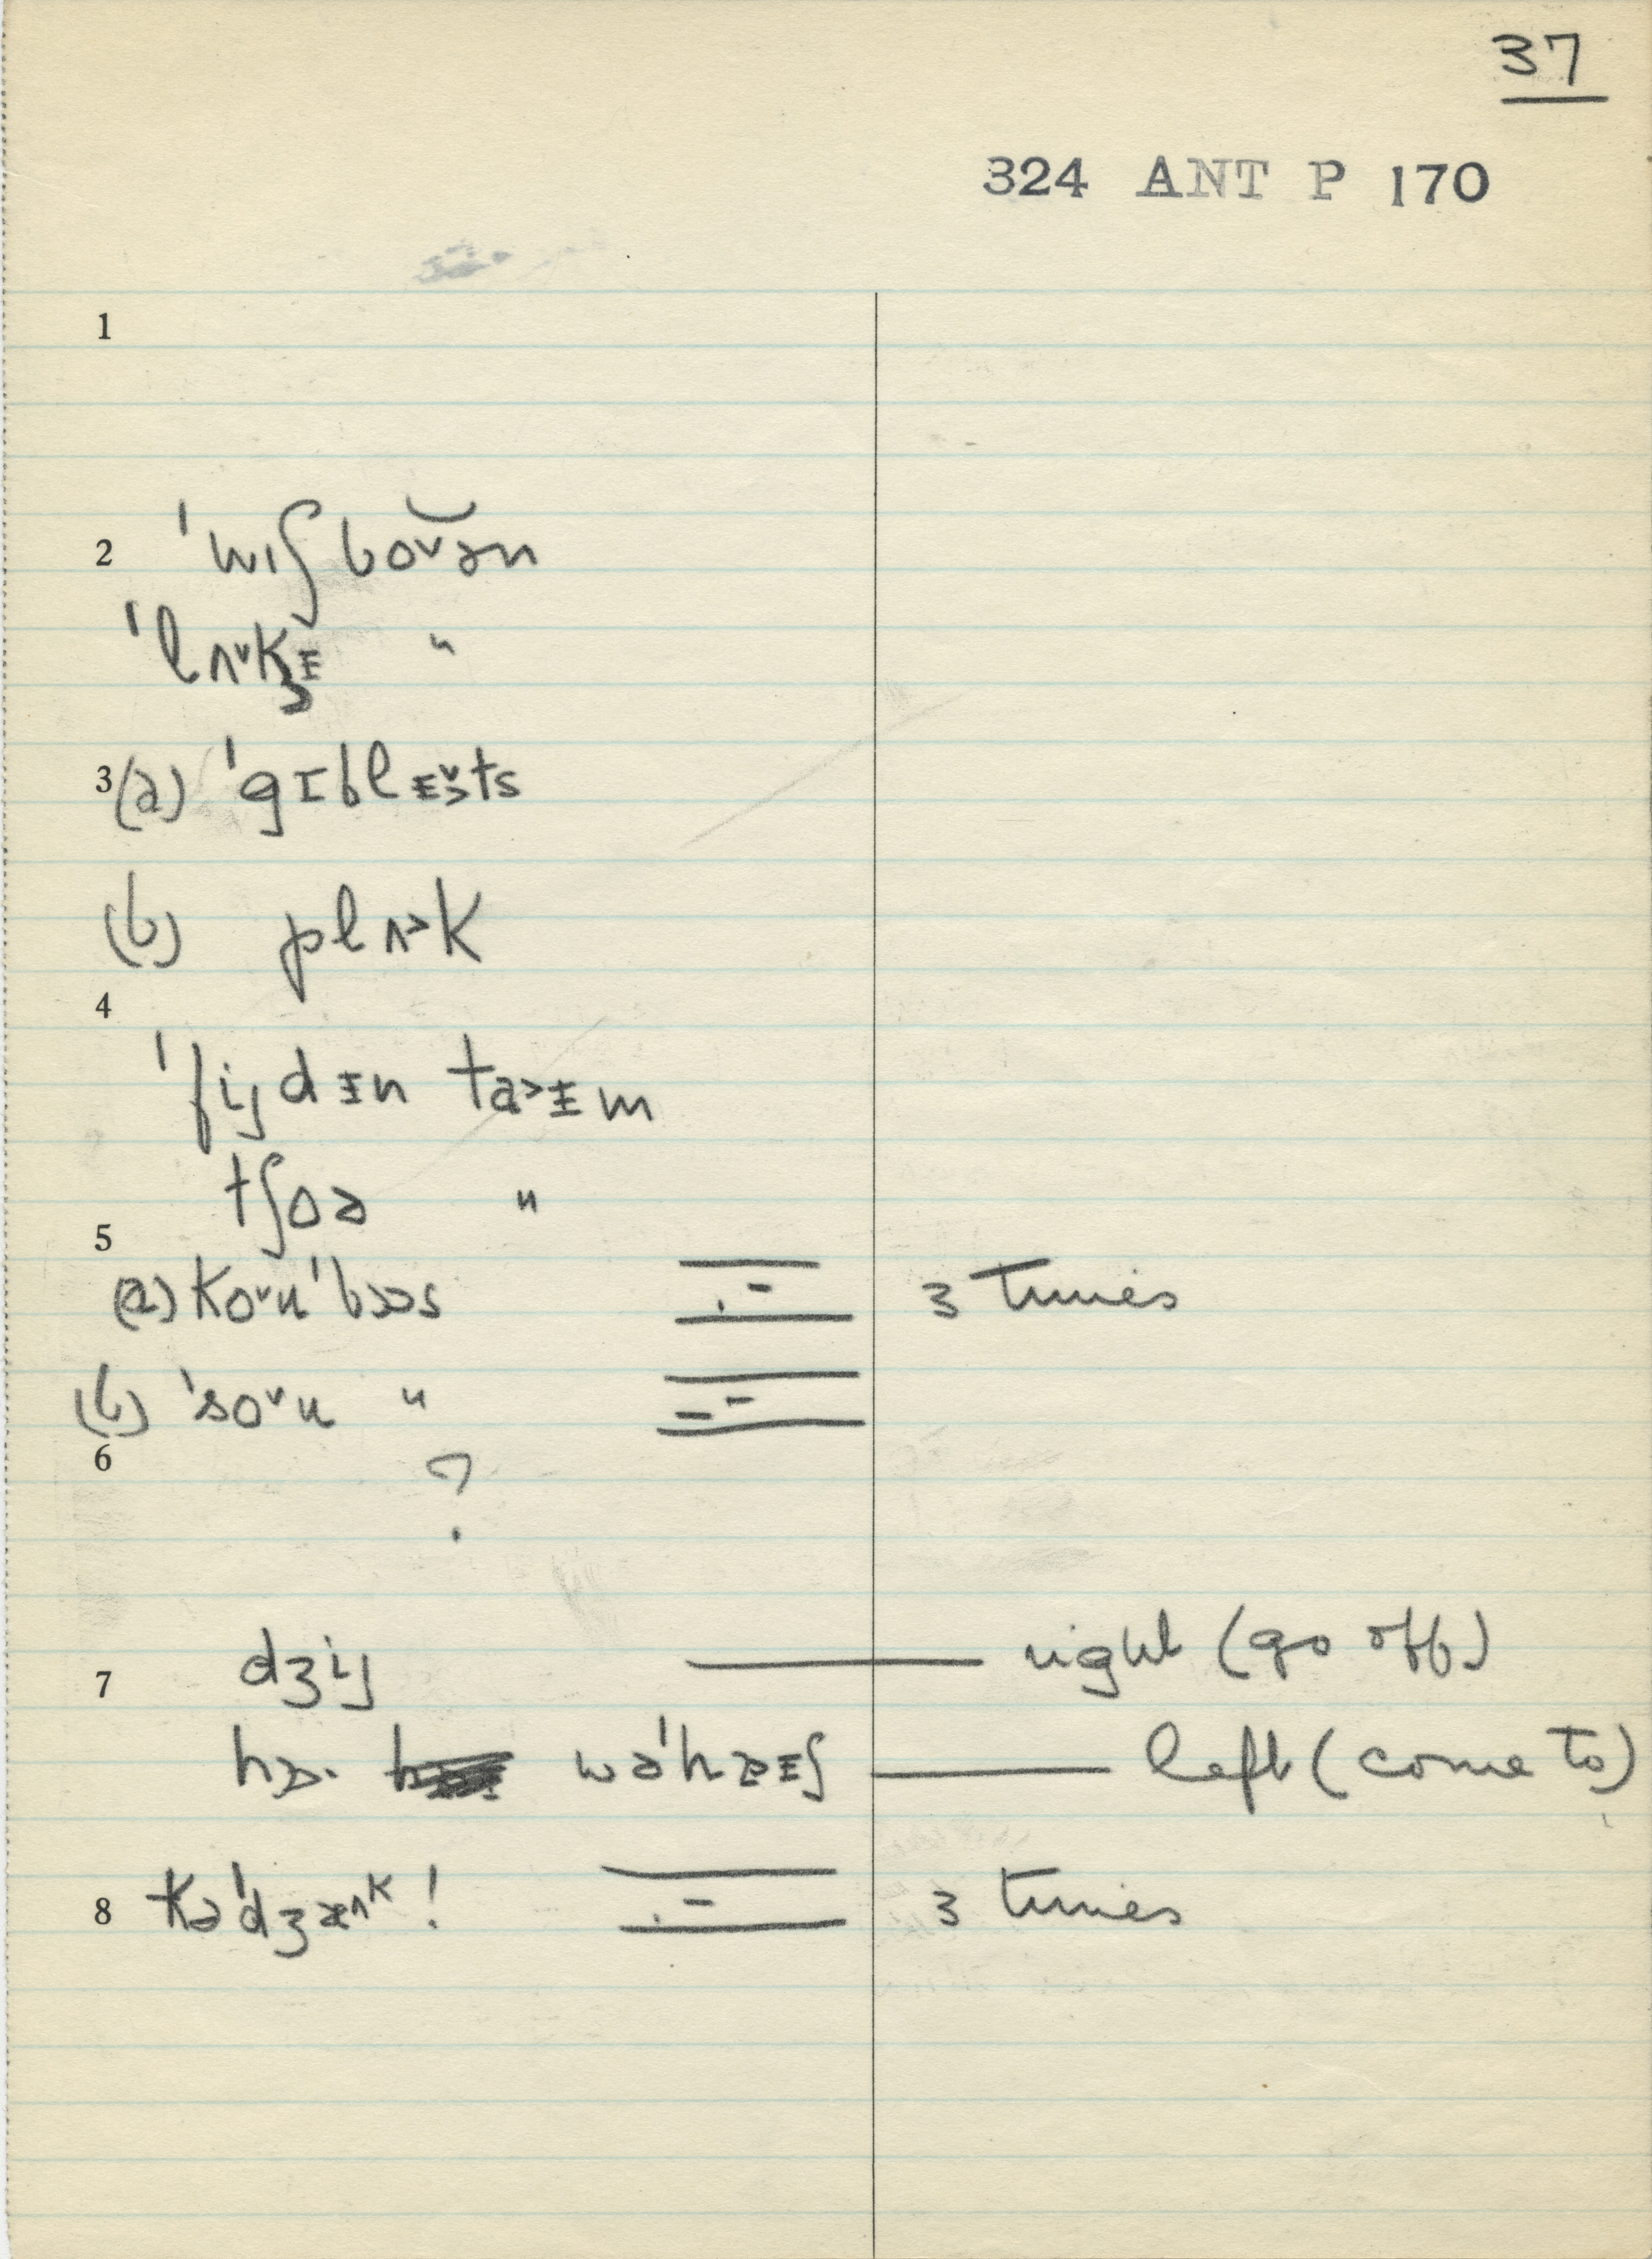 37
324 ANT P 170
1
2 ˈwɪʃ bo˅ən
ˈlʌ˅kᵻ "
3 (a) ˈgɪblᵻ˅ts
(b) plʌ˃k
4
ˈfijdᵻn ta˃ᵻm
tʃoə "
5
(a) ko˅uˈbɔ˃s 3 times
(b) ˈso˅u "
6 ?
7 dʒij right (go off)
wəˈhæᵻʃ left (come to)
8 kəˈdʒæʌᵏ! 3 times